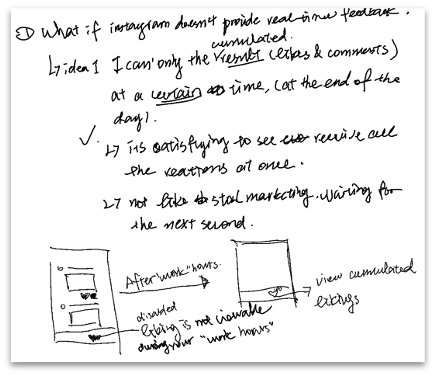 ① What if instagram doesn't provide real-time feedback.
↳ idea 1 I can only the cumulated result (likes & comments)
at a certain time, (at the end of the
day).
✓ ↳ its satisfying to see receive all
the reactions at once.
↳ not like stock marketing, waiting for
the next second.
After "work" hours.
view cumulated
likings
disabled
liking is not viewable
during your "work hours"